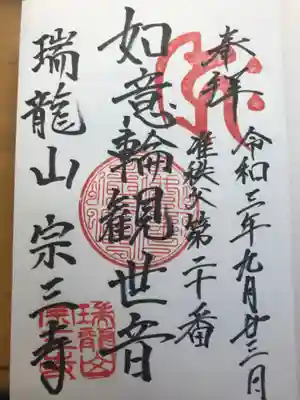 奉拝
令和三年九月廿三日
准秩父第二十番
如意輪観世音
瑞龍山 宗三寺